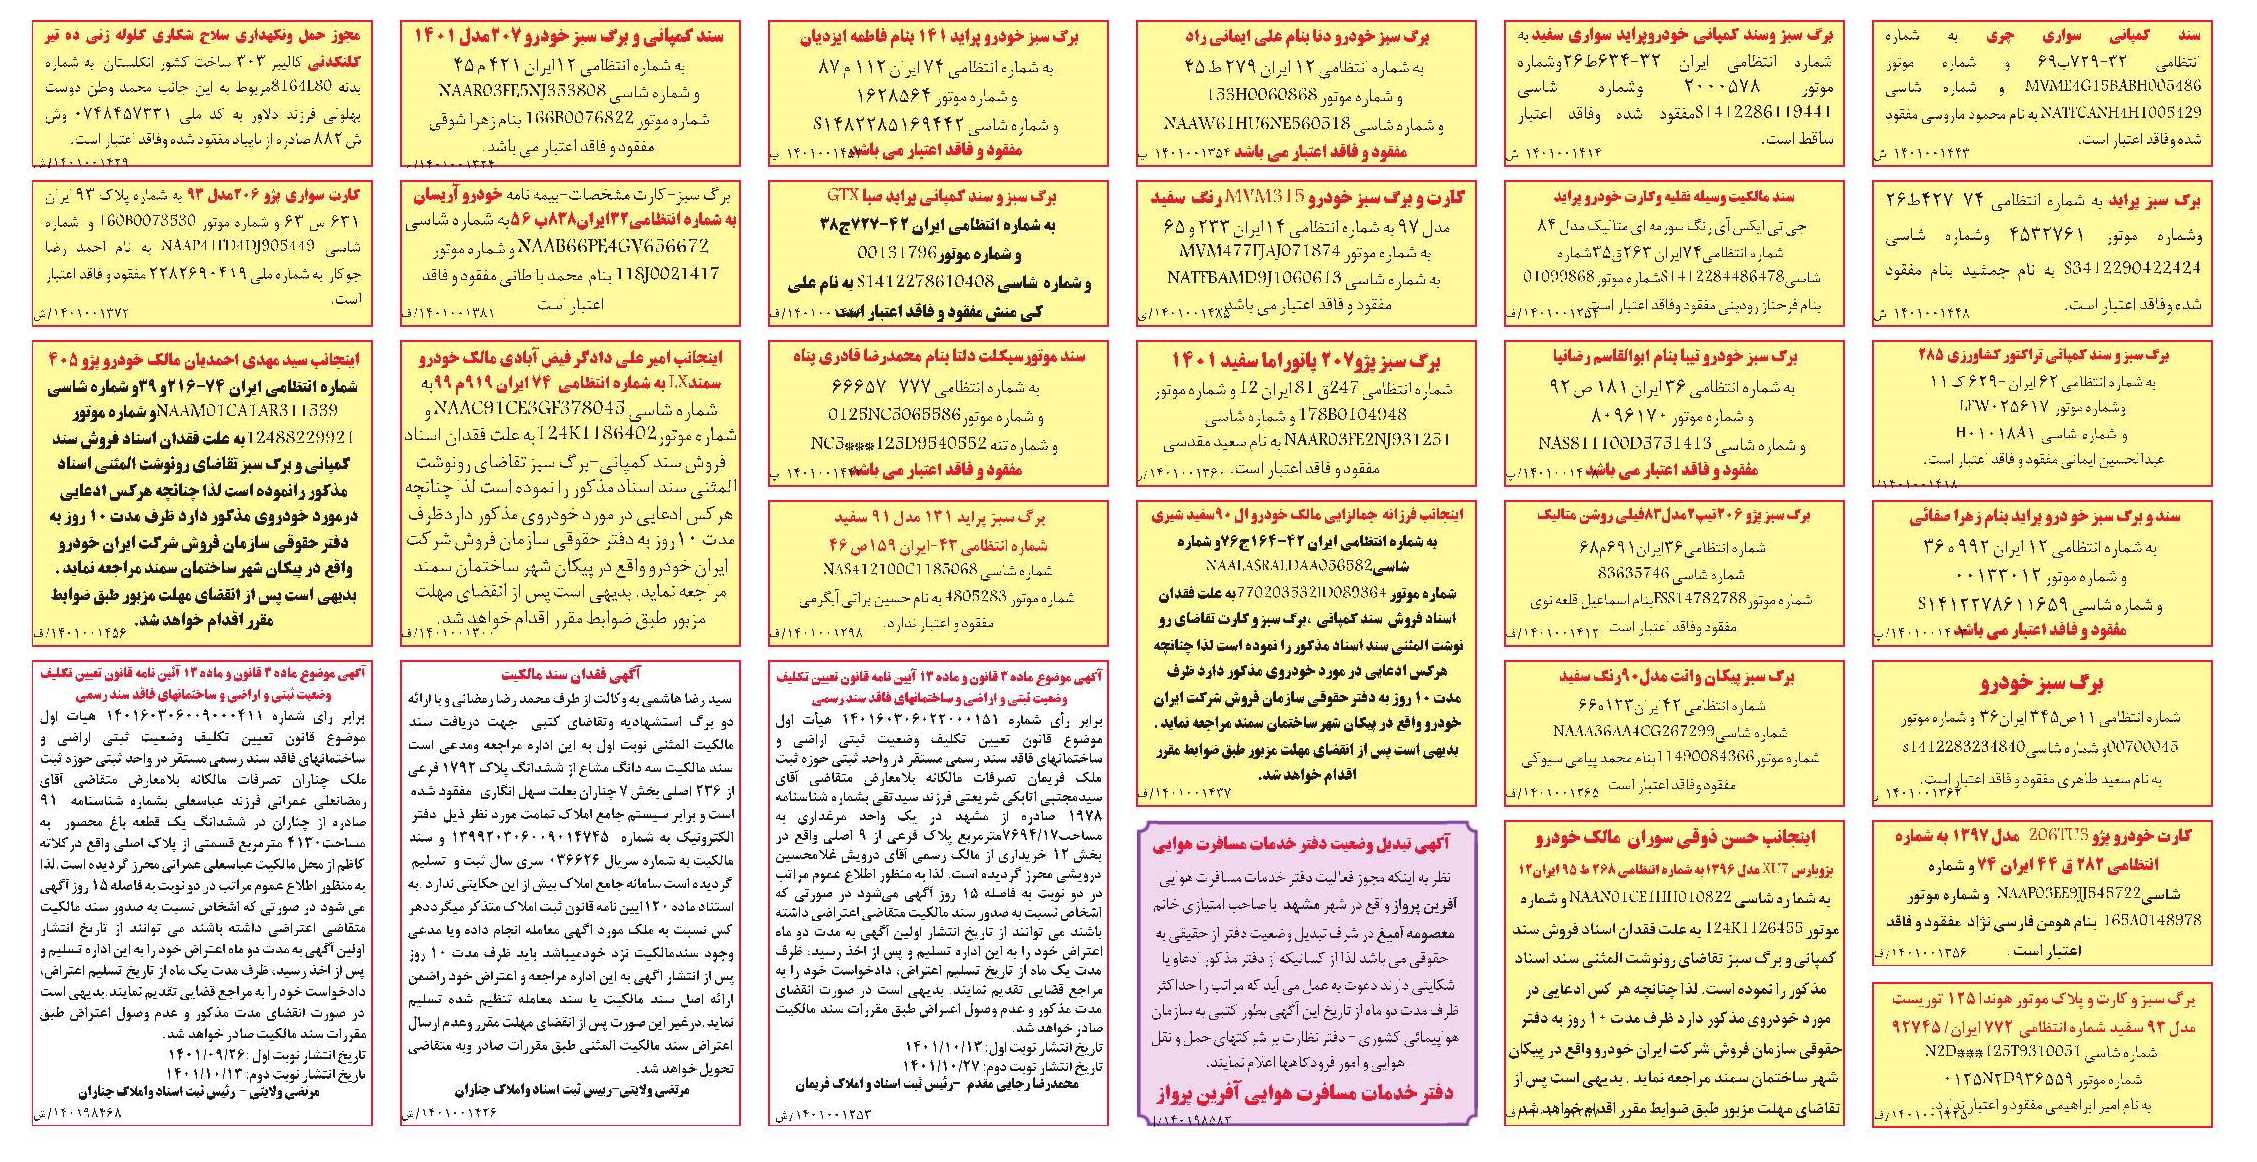 سند کمپانی سواری چری به شماره
انتظامی ۳۲-۷۲۹ب۶۹ و شماره موتور
MVME4G15BABH005486 و شماره شاسی
NATFCANH4H1005429 به نام محمود ماروسی مفقود
شده وفاقد اعتبار است.
۱۴۰۱۰۰۱۴۴۳ ش
برگ سبز پراید به شماره انتظامی ۷۴ ۴۲۷ط۲۶
وشماره موتور ۴۵۳۲۷۶۱ وشماره شاسی
S3412290422424 به نام جمشید بنام مفقود
شده وفاقد اعتبار است.
۱۴۰۱۰۰۱۴۴۸ ش
برگ سبز و سند کمپانی تراکتور کشاورزی ۲۸۵
به شماره انتظامی ۶۲ ایران -۶۲۹ ک ۱۱
وشماره موتور LFW۰۲۵۶۱۷
و شماره شاسی H۰۱۰۱۸۸۱
عبدالحسین ایمانی مفقود و فاقد اعتبار است.
۱۴۰۱۰۰۱۴۱۸/ر
سند و برگ سبز خودرو پراید بنام زهرا صفائی
به شماره انتظامی ۱۲ ایران ۹۹۲ ه ۳۶
و شماره موتور ۰۰۱۳۳۰۱۲
و شماره شاسی S۱۴۱۲۲۷۸۶۱۱۶۵۹
مفقود و فاقد اعتبار می باشد
برگ سبز خودرو
شماره انتظامی ۱۱ص۳۴۵ ایران۳۶ و شماره موتور
00700045و شماره شاسیs1412283234840
به نام سعید طاهری مفقود و فاقد اعتبار است.
۱۴۰۱۰۰۱۳۶۲ ر
کارت خودرو پژو 206TU3 مدل ۱۳۹۷ به شماره
انتظامی ۲۸۲ ق ۴۴ ایران ۷۴ و شماره
شاسیNAAP03EE9JJ545722 و شماره موتور
165A0148978 بنام هومن فارسی نژاد مفقود و فاقد
اعتبار است .
۱۴۰۱۰۰۱۳۵۶/ف
برگ سبز و کارت و پلاک موتور هوندا ۱۲۵ توریست
مدل ۹۳ سفید شماره انتظامی ۷۷۲ ایران/ ۹۲۷۴۵
شماره شاسی N2D***125T9310051
شماره موتور ۰۱۲۵N۲D۹۳۶۵۵۹
به نام امیر ابراهیمی مفقود و اعتبار ندارد.
برگ سبز وسند کمپانی خودروپراید سواری سفید به
شماره انتظامی ایران ۳۲-۶۳۴ط۲۶وشماره
موتور ۲۰۰۰۵۷۸ وشماره شاسی
S1412286119441مفقود شده وفاقد اعتبار
ساقط است.
۱۴۰۱۰۰۱۴۱۴ ش
سند مالکیت وسیله نقلیه وکارت خودرو پراید
جی تی ایکس آی رنگ سورمه ای متالیک مدل ۸۴
شماره انتظامی۷۴ایران ۲۶۳ق۳۵شماره
شاسیS1412284486478شماره موتور01099868
بنام فرحناز رودینی مفقود وفاقد اعتبار است
برگ سبز خودرو تیبا بنام ابوالقاسم رضانیا
به شماره انتظامی ۳۶ ایران ۱۸۱ ص ۹۲
و شماره موتور ۸۰۹۶۱۷۰
و شماره شاسی NAS811100D5751413
مفقود و فاقد اعتبار می باشد
برگ سبز پژو ۲۰۶تیپ۲مدل۸۳فیلی روشن متالیک
شماره انتظامی۳۶ایران۶۹۱م۶۸
شماره شاسی 83635746
شماره موتورFSS14782788بنام اسماعیل قلعه نوی
مفقود وفاقد اعتبار است
۱۴۰۱۰۰۱۴۱۲/ف
برگ سبز پیکان وانت مدل۹۰رنگ سفید
شماره انتظامی ۴۲ ایران۱۲۳ه۶۶
شماره شاسیNAAA36AA4CG267299
شماره موتور11490084366بنام محمد پیامی سیوکی
مفقود وفاقد اعتبار است
۱۴۰۱۰۰۱۳۶۵/ف
اینجانب حسن ذوقی سوران مالک خودرو
پژوپارس XU7 مدل ۱۳۹۶ به شماره انتظامی ۲۶۸ ط ۹۵ ایران۱۲
به شماره شاسی NAAN01CE1HH010822 و شماره
موتور 124K1126455 به علت فقدان اسناد فروش سند
کمپانی و برگ سبز تقاضای رونوشت المثنی سند اسناد
مذکور را نموده است. لذا چنانچه هر کس ادعایی در
مورد خودروی مذکور دارد ظرف مدت ۱۰ روز به دفتر
حقوقی سازمان فروش شرکت ایران خودرو واقع در پیکان
شهر ساختمان سمند مراجعه نماید . بدیهی است پس از
تقاضای مهلت مزبور طبق ضوابط مقرر اقدام خواهد شد
برگ سبز خودرو دنا بنام علی ایمانی راد
به شماره انتظامی ۱۲ ایران ۲۷۹ ط ۴۵
و شماره موتور 153H0060868
و شماره شاسی NAAW61HU6NE560518
مفقود و فاقد اعتبار می باشد
۱۴۰۱۰۰۱۳۵۴ پ
کارت و برگ سبز خودرو MVM315 رنگ سفید
مدل ۹۷ به شماره انتظامی ۱۴ ایران ۲۳۳ و ۶۵
به شماره موتور MVM477FJAJ071874
به شماره شاسی NATFBAMD9J1060613
مفقود و فاقد اعتبار می باشد
۱۴۰۱۰۰۱۴۸۵/ی
برگ سبز پژو۲۰۷ پانوراما سفید ۱۴۰۱
شماره انتظامی 247ق 81 ایران 12 و شماره موتور
178B0104948 و شماره شاسی
NAAR03FE2NJ931251 به نام سعید مقدسی
مفقود و فاقد اعتبار است.
۱۴۰۱۰۰۱۳۶۰/ر
اینجانب فرزانه جمالزایی مالک خودرو ال ۹۰سفید شیری
به شماره انتظامی ایران ۴۲-۱۶۴ج۷۶و شماره
شاسیNAALASRALDAA056582
شماره موتور 770203532ID089364به علت فقدان
اسناد فروش سند کمپانی ،برگ سبز و کارت تقاضای رو
نوشت المثنی سند اسناد مذکور را نموده است لذا چنانچه
هرکس ادعایی در مورد خودروی مذکور دارد ظرف
مدت ۱۰ روز به دفتر حقوقی سازمان فروش شرکت ایران
خودرو واقع در پیکان شهر ساختمان سمند مراجعه نماید .
بدیهی است پس از انقضای مهلت مزبور طبق ضوابط مقرر
اقدام خواهد شد.
۱۴۰۱۰۰۱۴۳۷/ف
آگهی تبدیل وضعیت دفتر خدمات مسافرت هوایی
نظر به اینکه مجوز فعالیت دفتر خدمات مسافرت هوایی
آفرین پرواز واقع در شهر مشهد با صاحب امتیازی خانم
معصومه آمیغ در شرف تبدیل وضعیت دفتر از حقیقی به
حقوقی می باشد لذا از کسانیکه از دفتر مذکور ادعا و یا
شکایتی دارند دعوت به عمل می آید که مراتب را حداکثر
ظرف مدت دو ماه از تاریخ این آگهی بطور کتبی به سازمان
هواپیمائی کشوری - دفتر نظارت بر شرکتهای حمل و نقل
هوایی و امور فرودگاهها اعلام نمایند.
دفتر خدمات مسافرت هوایی آفرین پرواز
برگ سبز خودرو پراید ۱۴۱ بنام فاطمه ایزدیان
به شماره انتظامی ۷۴ ایران ۱۱۲ م ۸۷
و شماره موتور ۱۶۲۸۵۶۴
و شماره شاسی S۱۴۸۲۲۸۵۱۶۹۴۴۲
مفقود و فاقد اعتبار می باشد
برگ سبز و سند کمپانی پراید صبا GTX
به شماره انتظامی ایران ۴۲-۷۲۷ج۳۸
و شماره موتور00131796
و شماره شاسی S1412278610408 به نام علی
کی منش مفقود و فاقد اعتبار است
سند موتورسیکلت دلتا بنام محمدرضا قادری پناه
به شماره انتظامی ۷۷۷ ۶۶۶۵۷
و شماره موتور0125NC5065586
و شماره تنه NC5***125D9540552
مفقود و فاقد اعتبار می باشد
برگ سبز پراید ۱۳۱ مدل ۹۱ سفید
شماره انتظامی ۴۳-ایران ۱۵۹ص ۴۶
شماره شاسی NAS412100C1185068
شماره موتور 4805283 به نام حسین براتی آبگرمی
مفقود و اعتبار ندارد.
۱۴۰۱۰۰۱۲۹۸/ف
آگهی موضوع ماده ۳ قانون و ماده ۱۳ آیین نامه قانون تعیین تکلیف
وضعیت ثبتی و اراضی و ساختمانهای فاقد سند رسمی
برابر رأی شماره ۱۴۰۱۶۰۳۰۶۰۲۲۰۰۰۱۵۱ هیأت اول
موضوع قانون تعیین تکلیف وضعیت ثبتی اراضی و
ساختمانهای فاقد سند رسمی مستقر در واحد ثبتی حوزه ثبت
ملک فریمان تصرفات مالکانه بلامعارض متقاضی آقای
سیدمجتبی اتابکی شریعتی فرزند سیدتقی بشماره شناسنامه
۱۹۷۸ صادره از مشهد در یک واحد مرغداری به
مساحت۷۶۹۴/۱۷مترمربع پلاک فرعی از ۹ اصلی واقع در
بخش ۱۲ خریداری از مالک رسمی آقای درویش غلامحسین
درویشی محرز گردیده است. لذا به منظور اطلاع عموم مراتب
در دو نوبت به فاصله ۱۵ روز آگهی می‌شود در صورتی که
اشخاص نسبت به صدور سند مالکیت متقاضی اعتراضی داشته
باشند می توانند از تاریخ انتشار اولین آگهی به مدت دو ماه
اعتراض خود را به این اداره تسلیم و پس از اخذ رسید، ظرف
مدت یک ماه از تاریخ تسلیم اعتراض، دادخواست خود را به
مراجع قضایی تقدیم نمایند. بدیهی است در صورت انقضای
مدت مذکور و عدم وصول اعتراض طبق مقررات سند مالکیت
صادر خواهد شد.
تاریخ انتشار نوبت اول: ۱۴۰۱/۱۰/۱۳
تاریخ انتشار نوبت دوم: ۱۴۰۱/۱۰/۲۷
محمدرضا رجایی مقدم -رئیس ثبت اسناد و املاک فریمان
۱۴۰۱۰۰۱۲۵۳/ش
سند کمپانی و برگ سبز خودرو ۲۰۷مدل ۱۴۰۱
به شماره انتظامی ۱۲ایران ۴۲۱ م ۴۵
و شماره شاسی NAAR03FE5NJ353808
شماره موتور 166B0076822 بنام زهرا شوقی
مفقود و فاقد اعتبار می باشد.
برگ سبز-کارت مشخصات-بیمه نامه خودرو آریسان
به شماره انتظامی۳۲ایران۸۳۸ب ۵۶به شماره شاسی
NAAB66PE4GV656672 و شماره موتور
118J0021417 بنام محمد باطانی مفقود و فاقد
اعتبار است
۱۴۰۱۰۰۱۳۸۱/ف
اینجانب امیر علی دادگر فیض آبادی مالک خودرو
سمندLX به شماره انتظامی ۷۴ ایران ۹۱۹م ۹۹به
شماره شاسی NAAC91CE3GF378045 و
شماره موتور124K1186402 به علت فقدان اسناد
فروش سند کمپانی-برگ سبز تقاضای رونوشت
المثنی سند اسناد مذکور را نموده است لذا چنانچه
هرکس ادعایی در مورد خودروی مذکور داردظرف
مدت ۱۰روز به دفتر حقوقی سازمان فروش شرکت
ایران خودرو واقع در پیکان شهر ساختمان سمند
مراجعه نماید. بدیهی است پس از انقضای مهلت
مزبور طبق ضوابط مقرر اقدام خواهد شد.
آگهی فقدان سند مالکیت
سید رضا هاشمی به وکالت از طرف محمد رضا رمضانی و با ارائه
دو برگ استشهادیه وتقاضای کتبی جهت دریافت سند
مالکیت المثنی نوبت اول به این اداره مراجعه ومدعی است
سند مالکیت سه دانگ مشاع از ششدانگ پلاک ۱۷۹۲ فرعی
از ۲۳۶ اصلی بخش ۷ چناران بعلت سهل انگاری مفقود شده
است و برابر سیستم جامع املاک تمامت مورد نظر ذیل دفتر
الکترونیک به شماره ۱۳۹۹۲۰۳۰۶۰۰۹۰۱۴۷۴۵ و سند
مالکیت به شماره سریال ۰۳۶۶۲۶ سری سال ثبت و تسلیم
گردیده است سامانه جامع املاک بیش از این حکایتی ندارد .به
استناد ماده ۱۲۰آیین نامه قانون ثبت املاک متذکر میگرددهر
کس نسبت به ملک مورد اگهی معامله انجام داده ویا مدعی
وجود سندمالکیت نزد خودمیباشد باید ظرف مدت ۱۰ روز
پس از انتشار اگهی به این اداره مراجعه و اعتراض خود راضمن
ارائه اصل سند مالکیت یا سند معامله تنظیم شده تسلیم
نماید.درغیر این صورت پس از انقضای مهلت مقرر وعدم ارسال
اعتراض سند مالکیت المثنی طبق مقررات صادر وبه متقاضی
تحویل خواهد شد.
مرتضی ولایتی-رییس ثبت اسناد واملاک چناران
۱۴۰۱۰۰۱۴۲۶/ش
مجوز حمل ونگهداری سلاح شکاری گلوله زنی ده تیر
گلنگدنی کالیبر ۳۰۳ ساخت کشور انگلستان به شماره
بدنه 8164L80مربوط به این جانب محمد وطن دوست
پهلوانی فرزند دلاور به کد ملی ۰۷۴۸۴۵۷۳۳۱ وش
ش ۸۸۲ صادره از تایباد مفقود شده وفاقد اعتبار است.
۱۴۰۱۰۰۱۴۲۹/ش
کارت سواری پژو ۲۰۶مدل ۹۳ به شماره پلاک ۹۳ ایران
۶۳۱ س ۶۳ و شماره موتور 160B0073530 و شماره
شاسی NAAP41FD4DJ905449 به نام احمد رضا
جوکار به شماره ملی ۲۲۸۲۶۹۰۴۱۹ مفقود و فاقد اعتبار
است.
۱۴۰۱۰۰۱۳۷۲/ش
اینجانب سید مهدی احمدیان مالک خودرو پژو ۴۰۵
شماره انتظامی ایران ۷۴-۲۱۶و ۳۹و شماره شاسی
NAAM01CA1AR311539و شماره موتور
12488229921به علت فقدان اسناد فروش سند
کمپانی و برگ سبز تقاضای رونوشت المثنی اسناد
مذکور را نموده است لذا چنانچه هرکس ادعایی
درمورد خودروی مذکور دارد ظرف مدت ۱۰ روز به
دفتر حقوقی سازمان فروش شرکت ایران خودرو
واقع در پیکان شهر ساختمان سمند مراجعه نماید .
بدیهی است پس از انقضای مهلت مزبور طبق ضوابط
مقرر اقدام خواهد شد.
۱۴۰۱۰۰۱۴۵۶/ف
آگهی موضوع ماده ۳ قانون و ماده ۱۳ آئین نامه قانون تعیین تکلیف
وضعیت ثبتی و اراضی و ساختمانهای فاقد سند رسمی
برابر رای شماره ۱۴۰۱۶۰۳۰۶۰۰۹۰۰۰۴۱۱ هیات اول
موضوع قانون تعیین تکلیف وضعیت ثبتی اراضی و
ساختمانهای فاقد سند رسمی مستقر در واحد ثبتی حوزه ثبت
ملک چناران تصرفات مالکانه بلامعارض متقاضی آقای
رمضانعلی عمرانی فرزند عباسعلی بشماره شناسنامه ۹۱
صادره از چناران در ششدانگ یک قطعه باغ محصور به
مساحت۴۱۳۰ مترمربع قسمتی از پلاک اصلی واقع درکلاته
کاظم از محل مالکیت عباسعلی عمرانی محرز گردیده است.لذا
به منظور اطلاع عموم مراتب در دو نوبت به فاصله ۱۵ روز آگهی
می شود در صورتی که اشخاص نسبت به صدور سند مالکیت
متقاضی اعتراضی داشته باشند می توانند از تاریخ انتشار
اولین آگهی به مدت دو ماه اعتراض خود را به این اداره تسلیم و
پس از اخذ رسید، ظرف مدت یک ماه از تاریخ تسلیم اعتراض،
دادخواست خود را به مراجع قضایی تقدیم نمایند.بدیهی است
در صورت انقضای مدت مذکور و عدم وصول اعتراض طبق
مقررات سند مالکیت صادر خواهد شد.
تاریخ انتشار نوبت اول :۱۴۰۱/۰۹/۲۶
تاریخ انتشار نوبت دوم: ۱۴۰۱/۱۰/۱۳
مرتضی ولایتی – رئیس ثبت اسناد واملاک چناران
۱۴۰۱۹۸۴۶۸/ش